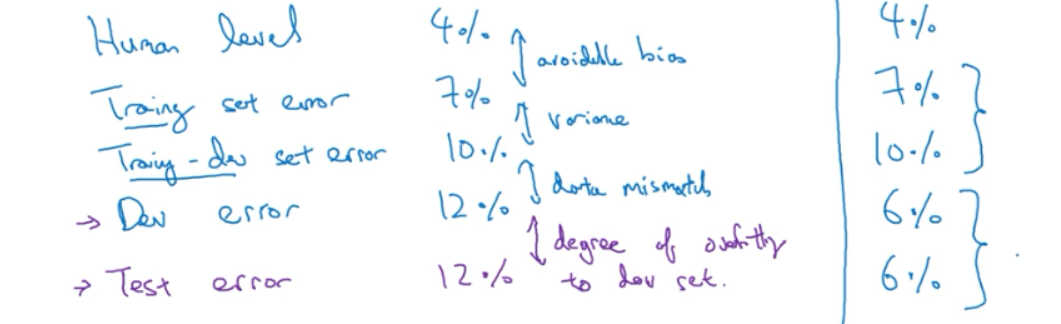 Human level 4% 4%
avoidable bias
Training set error 7% 7%
variance
Training-dev set error 10% 10%
data mismatch
→ Dev error 12% 6%
degree of overfitting to dev set.
→ Test error 12% 6%